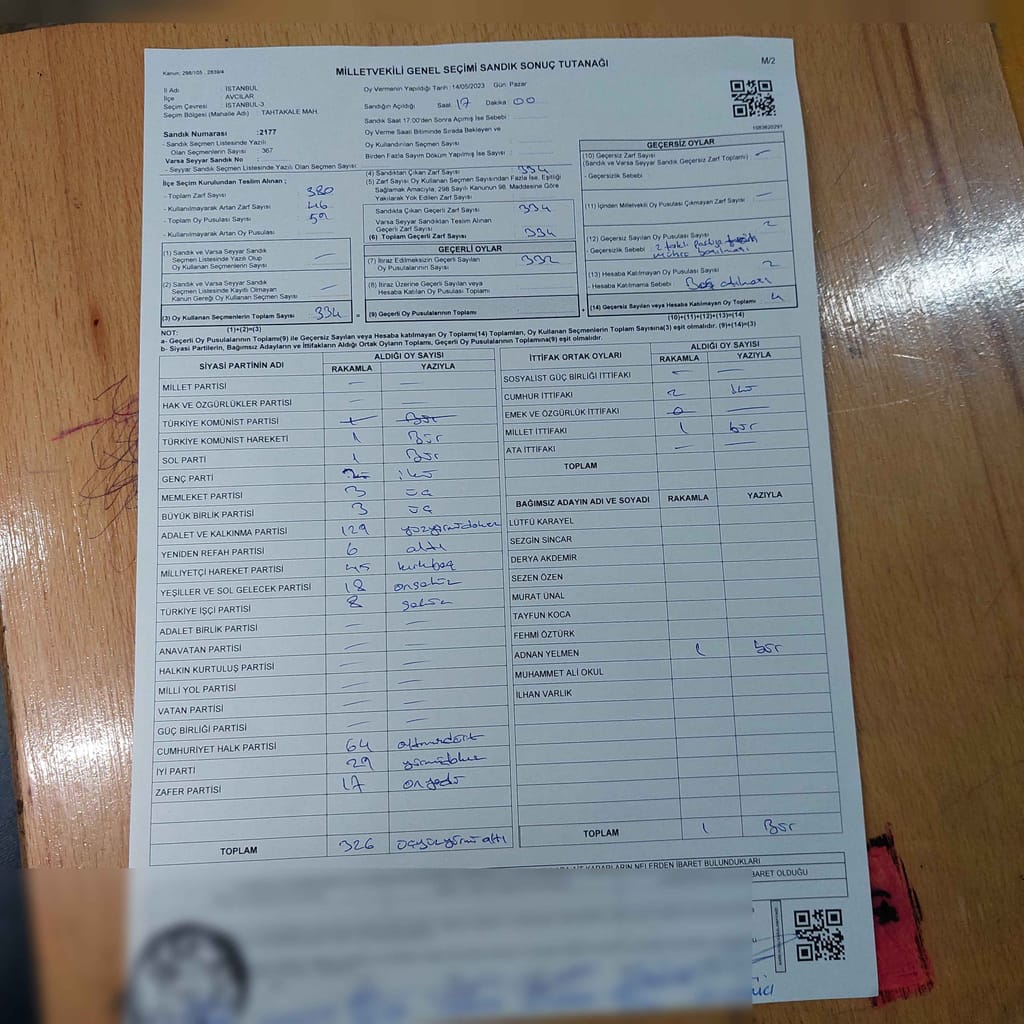 Kanun: 298/105 , 2839/4
MİLLETVEKİLİ GENEL SEÇİMİ SANDIK SONUÇ TUTANAĞI
M/2
İl Adı : İSTANBUL
İlçe : AVCILAR
Seçim Çevresi : İSTANBUL-3
Seçim Bölgesi (Mahalle Adı) : TAHTAKALE MAH.
Sandık Numarası :2177
- Sandık Seçmen Listesinde Yazılı
Olan Seçmenlerin Sayısı : 367
Varsa Seyyar Sandık No :
- Seyyar Sandık Seçmen Listesinde Yazılı Olan Seçmen Sayısı:
Oy Vermenin Yapıldığı Tarih : 14/05/2023 Gün: Pazar
Sandığın Açıldığı Saat 17 Dakika 00
Sandık Saat 17.00'den Sonra Açılmış İse Sebebi
Oy Verme Saati Bitiminde Sırada Bekleyen ve
Oy Kullandırılan Seçmen Sayısı
Birden Fazla Sayım Döküm Yapılmış İse Sayısı
İlçe Seçim Kurulundan Teslim Alınan ;
- Toplam Zarf Sayısı : 380
- Kullanılmayarak Artan Zarf Sayısı : 46
- Toplam Oy Pusulası Sayısı :
- Kullanılmayarak Artan Oy Pusulası Sayısı :
(1) Sandık ve Varsa Seyyar Sandık
Seçmen Listesinde Yazılı Olup
Oy Kullanan Seçmenlerin Sayısı —
(2) Sandık ve Varsa Seyyar Sandık
Seçmen Listesinde Kayıtlı Olmayan
Kanun Gereği Oy Kullanan Seçmen Sayısı —
(3) Oy Kullanan Seçmenlerin Toplam Sayısı 334
(1)+(2)=(3)
(4) Sandıktan Çıkan Zarf Sayısı 334
(5) Zarf Sayısı Oy Kullanan Seçmen Sayısından Fazla İse, Eşitliği
Sağlamak Amacıyla, 298 Sayılı Kanunun 98. Maddesine Göre
Yakılarak Yok Edilen Zarf Sayısı
Sandıkta Çıkan Geçerli Zarf Sayısı 334
Varsa Seyyar Sandıktan Teslim Alınan
Geçerli Zarf Sayısı
(6) Toplam Geçerli Zarf Sayısı 334
GEÇERLİ OYLAR
(7) İtiraz Edilmeksizin Geçerli Sayılan
Oy Pusulalarının Sayısı 332
(8) İtiraz Üzerine Geçerli Sayılan veya
Hesaba Katılan Oy Pusulası Toplamı
(9) Geçerli Oy Pusulalarının Toplamı
GEÇERSİZ OYLAR
(10) Geçersiz Zarf Sayısı
(Sandık ve Varsa Seyyar Sandık Geçersiz Zarf Toplamı) —
- Geçersizlik Sebebi
(11) İçinden Milletvekili Oy Pusulası Çıkmayan Zarf Sayısı —
(12) Geçersiz Sayılan Oy Pusulası Sayısı 2
- Geçersizlik Sebebi
(13) Hesaba Katılmayan Oy Pusulası Sayısı 2
- Hesaba Katılmama Sebebi
(14) Geçersiz Sayılan veya Hesaba Katılmayan Oy Toplamı 4
(10)+(11)+(12)+(13)=(14)
NOT:
a- Geçerli Oy Pusulaları Toplamı(9) ile Geçersiz Sayılan veya Hesaba katılmayan Oy Toplamı(14) Toplamları, Oy Kullanan Seçmenlerin Toplam Sayısına(3) eşit olmalıdır. (9)+(14)=(3)
b- Siyasi Partilerin, Bağımsız Adayların ve İttifakların Aldığı Ortak Oyların Toplamı, Geçerli Oy Pusulalarının Toplamına(9) eşit olmalıdır.
SİYASİ PARTİNİN ADI ALDIĞI OY SAYISI
RAKAMLA YAZIYLA
MİLLET PARTİSİ — —
HAK VE ÖZGÜRLÜKLER PARTİSİ — —
TÜRKİYE KOMÜNİST PARTİSİ
TÜRKİYE KOMÜNİST HAREKETİ 1 Bir
SOL PARTİ 1 Bir
GENÇ PARTİ 2 iki
MEMLEKET PARTİSİ 3 üç
BÜYÜK BİRLİK PARTİSİ 3 üç
ADALET VE KALKINMA PARTİSİ 129 yüzyirmidokuz
YENİDEN REFAH PARTİSİ 6 altı
MİLLİYETÇİ HAREKET PARTİSİ 45 kırkbeş
YEŞİLLER VE SOL GELECEK PARTİSİ 18 onsekiz
TÜRKİYE İŞÇİ PARTİSİ 8 sekiz
ADALET BİRLİK PARTİSİ — —
ANAVATAN PARTİSİ — —
HALKIN KURTULUŞ PARTİSİ — —
MİLLİ YOL PARTİSİ — —
VATAN PARTİSİ — —
GÜÇ BİRLİĞİ PARTİSİ — —
CUMHURİYET HALK PARTİSİ 64 altmışdört
İYİ PARTİ 29 yirmidokuz
ZAFER PARTİSİ 17 onyedi
TOPLAM 326 üçyüzyirmi altı
İTTİFAK ORTAK OYLARI ALDIĞI OY SAYISI
RAKAMLA YAZIYLA
SOSYALİST GÜÇ BİRLİĞİ İTTİFAKI — —
CUMHUR İTTİFAKI 2 iki
EMEK VE ÖZGÜRLÜK İTTİFAKI —
MİLLET İTTİFAKI 1 bir
ATA İTTİFAKI — —
TOPLAM
BAĞIMSIZ ADAYIN ADI VE SOYADI RAKAMLA YAZIYLA
LÜTFÜ KARAYEL
SEZGİN SİNCAR
DERYA AKDEMİR
SEZEN ÖZEN
MURAT ÜNAL
TAYFUN KOCA
FEHMİ ÖZTÜRK
ADNAN YELMEN 1 bir
MUHAMMET ALİ OKUL
İLHAN VARLIK
TOPLAM 1 Bir
NELERDEN İBARET BULUNDUKLARI
BARET OLDUĞU